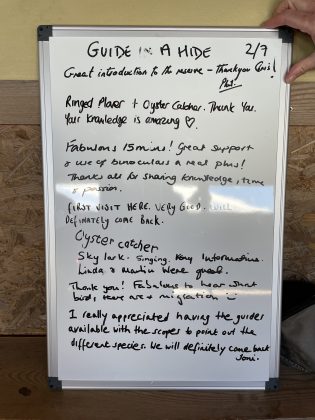 GUIDE IN A HIDE 2/7
Great introduction to the reserve - Thankyou Chris!
Phil!
Ringed Plover + Oyster Catcher. Thank You.
Your knowledge is amazing ♡.
Fabulous 15 mins! Great support
& use of binoculars a real plus!
Thanks all for sharing knowledge, time
& passion.
FIRST VISIT HERE. VERY GOOD. WILL
DEFINATELY COME BACK.
Oyster catcher
Sky lark. Singing. Very Informative.
Linda & Martin were great.
Thank you! Fabulous to hear what
birds there are + migration
I really appreciated having the guides
available with the scopes to point out the
different species. We will definitely come back